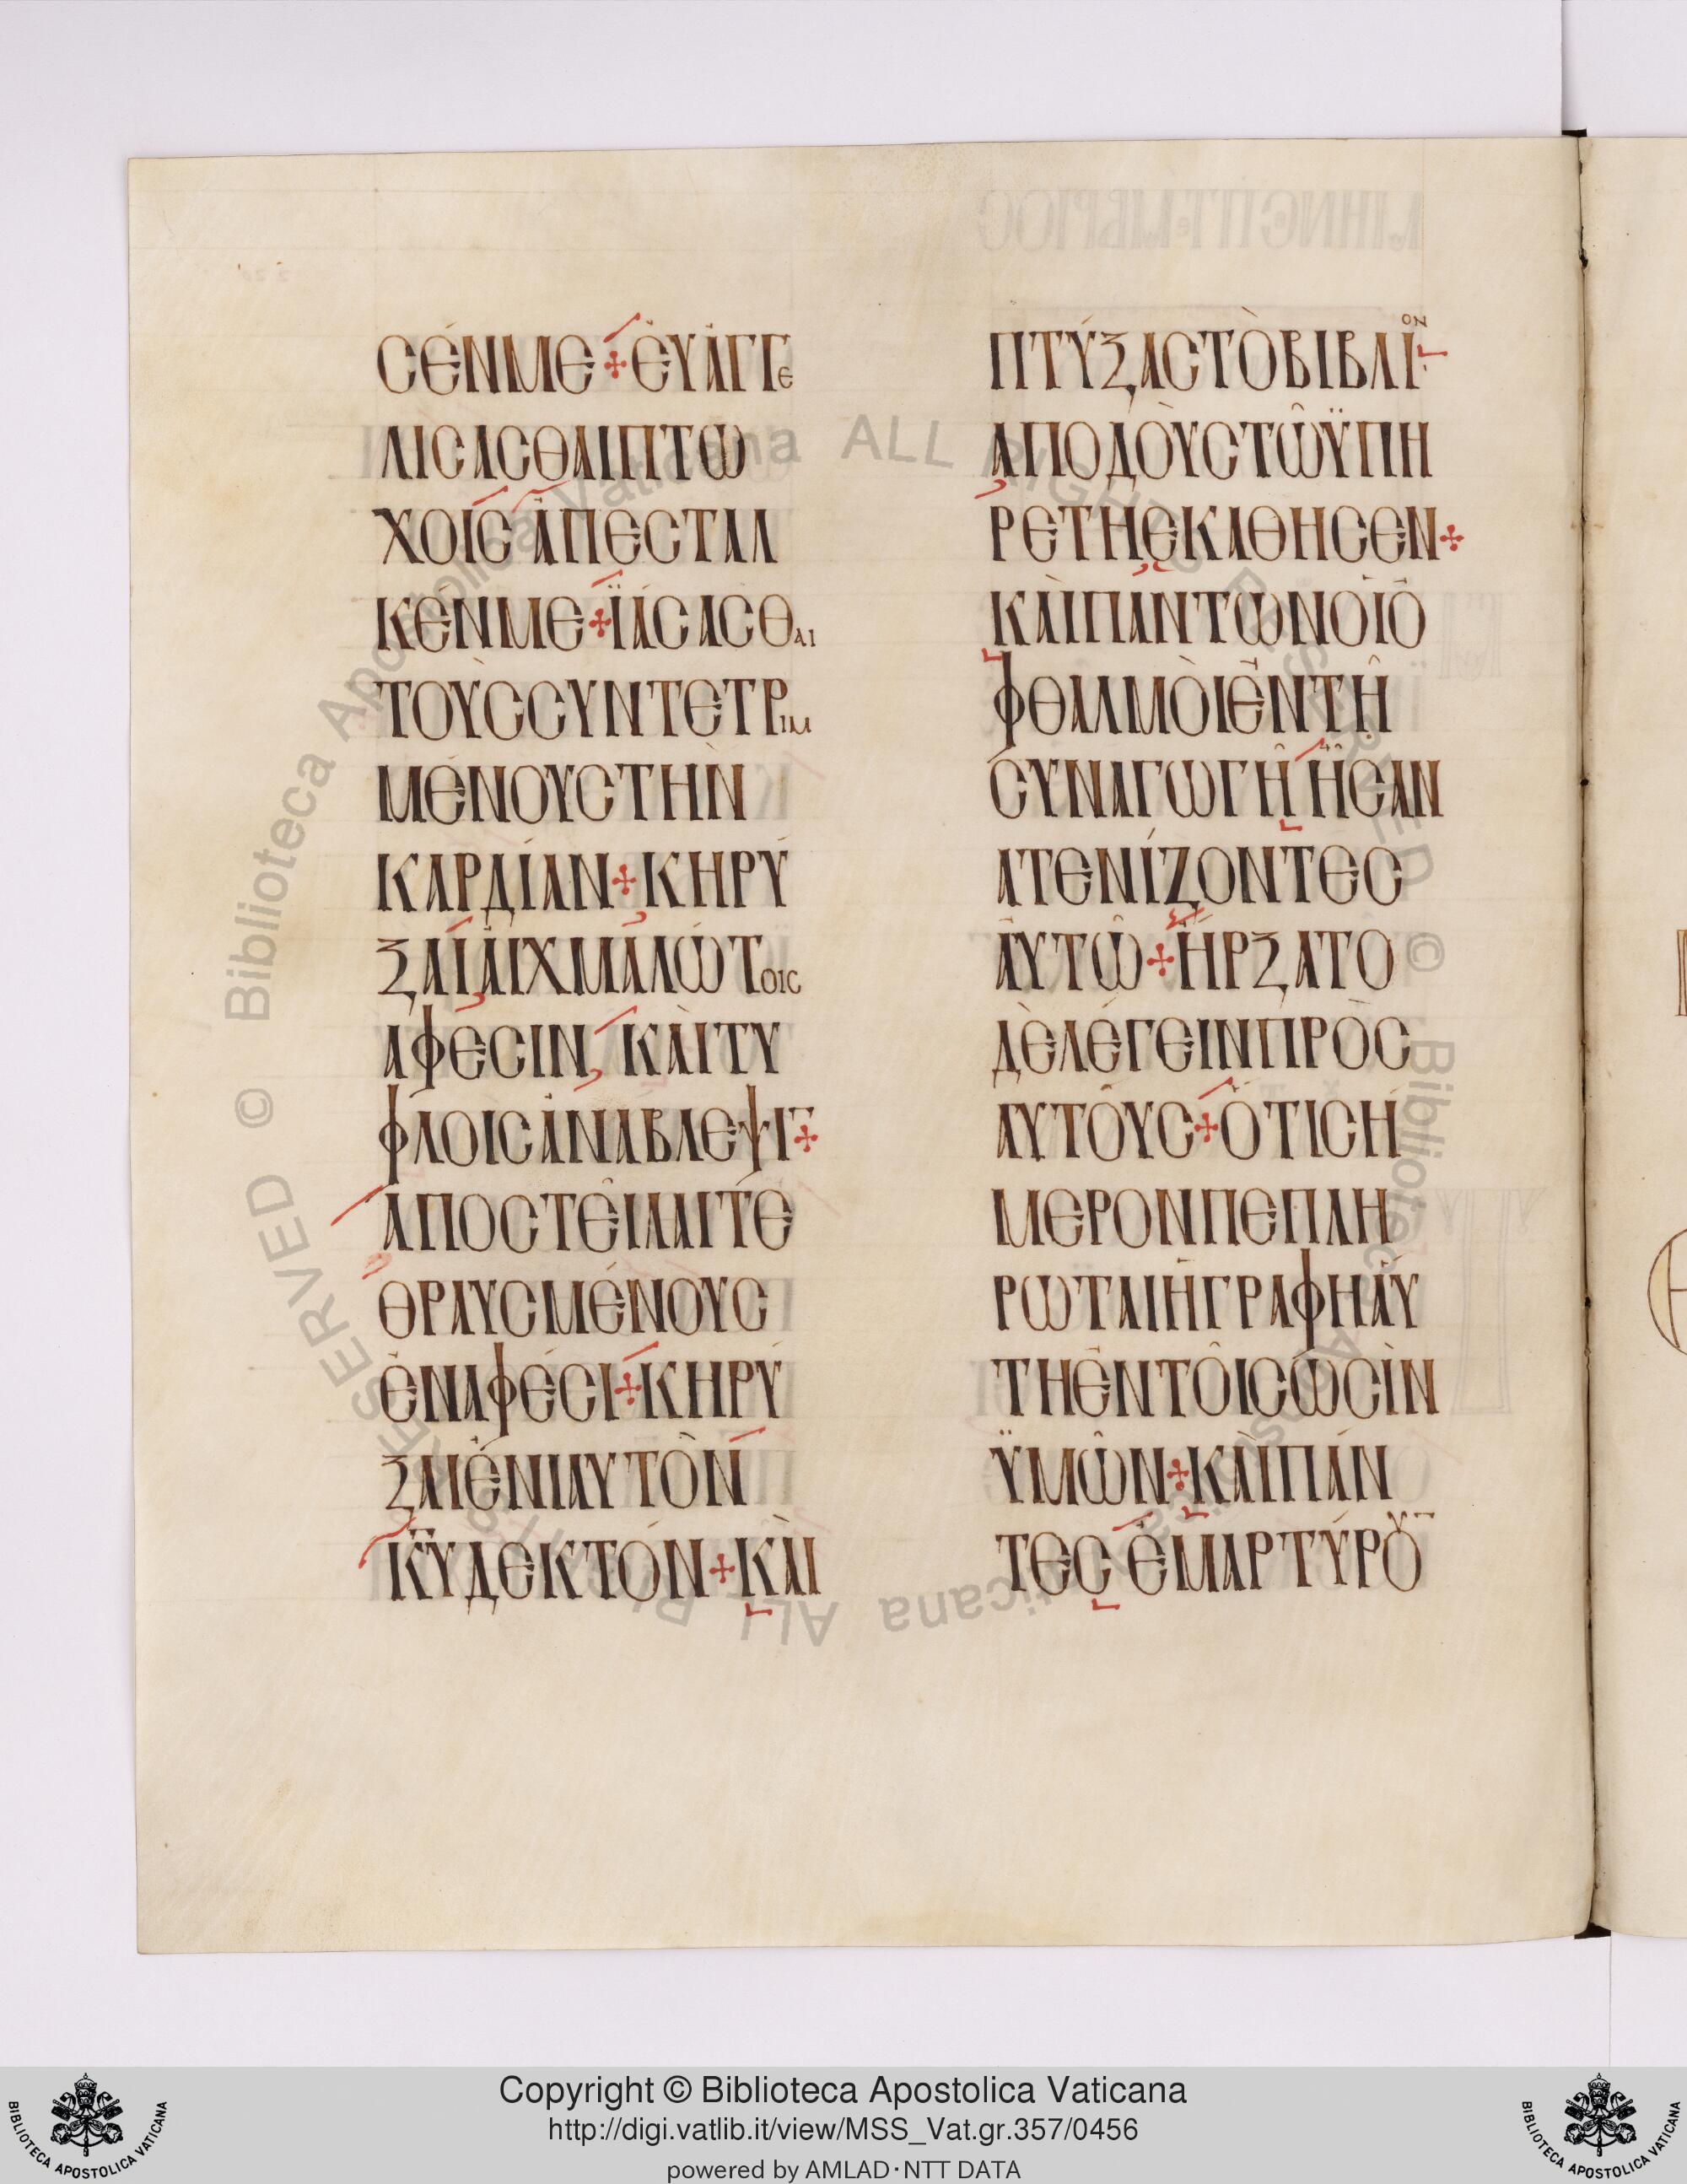 ϹΈΝΜΕ + ἘΥἈΓΓΕ
ΛΙϹΑϹΘΑΙΠΤΩ
ΧΟῖϹ ἈΠΕϹΤΑΛ
ΚΈΝΜΕ + ΪΆϹΑϹΘΑΙ
ΤΟῪϹϹΥΝΤΕΤΡΙΜ
ΜΈΝΟΥϹΤῊΝ
ΚΑΡΔΊΑΝ + ΚΗΡΎ
ΞΑΙ ἈΙΧΜΑΛΏΤΟΙϹ
ΑΦΕϹΙΝ, ΚΑῚΤΥ
ΦΛΟΙϹἈΝΑΒΛΕΨῙ +
ἈΠΟϹΤΕῖΛΑΙΤΕ
ΘΡΑΥϹΜΈΝΟΥϹ
ἘΝΑΦΈϹΙ + ΚΗΡΎ
ΞΑΙἘΝΙΑΥΤῸΝ
Κ̅Υ̅ΔΕΚΤΌΝ + ΚΑῚ
ΠΤΎΞΑϹΤῸΒΙΒΛΊΟΝ
ἈΠΟΔΟῪϹΤΩ͂ΫΠΗ
ΡΕΤΗΕΚΑΘΗϹΕΝ +
ΚΑῚΠΆΝΤΩΝΟἹὈ
ΦΘΑΛΜΟῚἘΝΤΗ͂
ϹΥΝΑΓΩΓΗ͂ ἮϹΑΝ
ΑΤΕΝΊΖΟΝΤΕϹ
ἈΥΤΩ͂ + ἬΡΞΑΤΟ
ΔῈΛΈΓΕΙΝΠΡῸϹ
ΑΥΤΟΎϹ + ὍΤΙϹΉ
ΜΕΡΟΝΠΕΠΛΗ
ΡΩΤΑΙἩΓΡΑΦΗἈΎ
ΤΗἘΝΤΟῖϹΩϹῚΝ
ΫΜΩ͂Ν + ΚΑῚΠΆΝ
ΤΕϹ ἘΜΑΡΤΎΡΟΥ̅
Copyright © Biblioteca Apostolica Vaticana
http://digi.vatlib.it/view/MSS_Vat.gr.357/0456
powered by AMLAD·NTT DATA
BIBLIOTECA APOSTOLICA VATICANA
BIBLIOTECA APOSTOLICA VATICANA